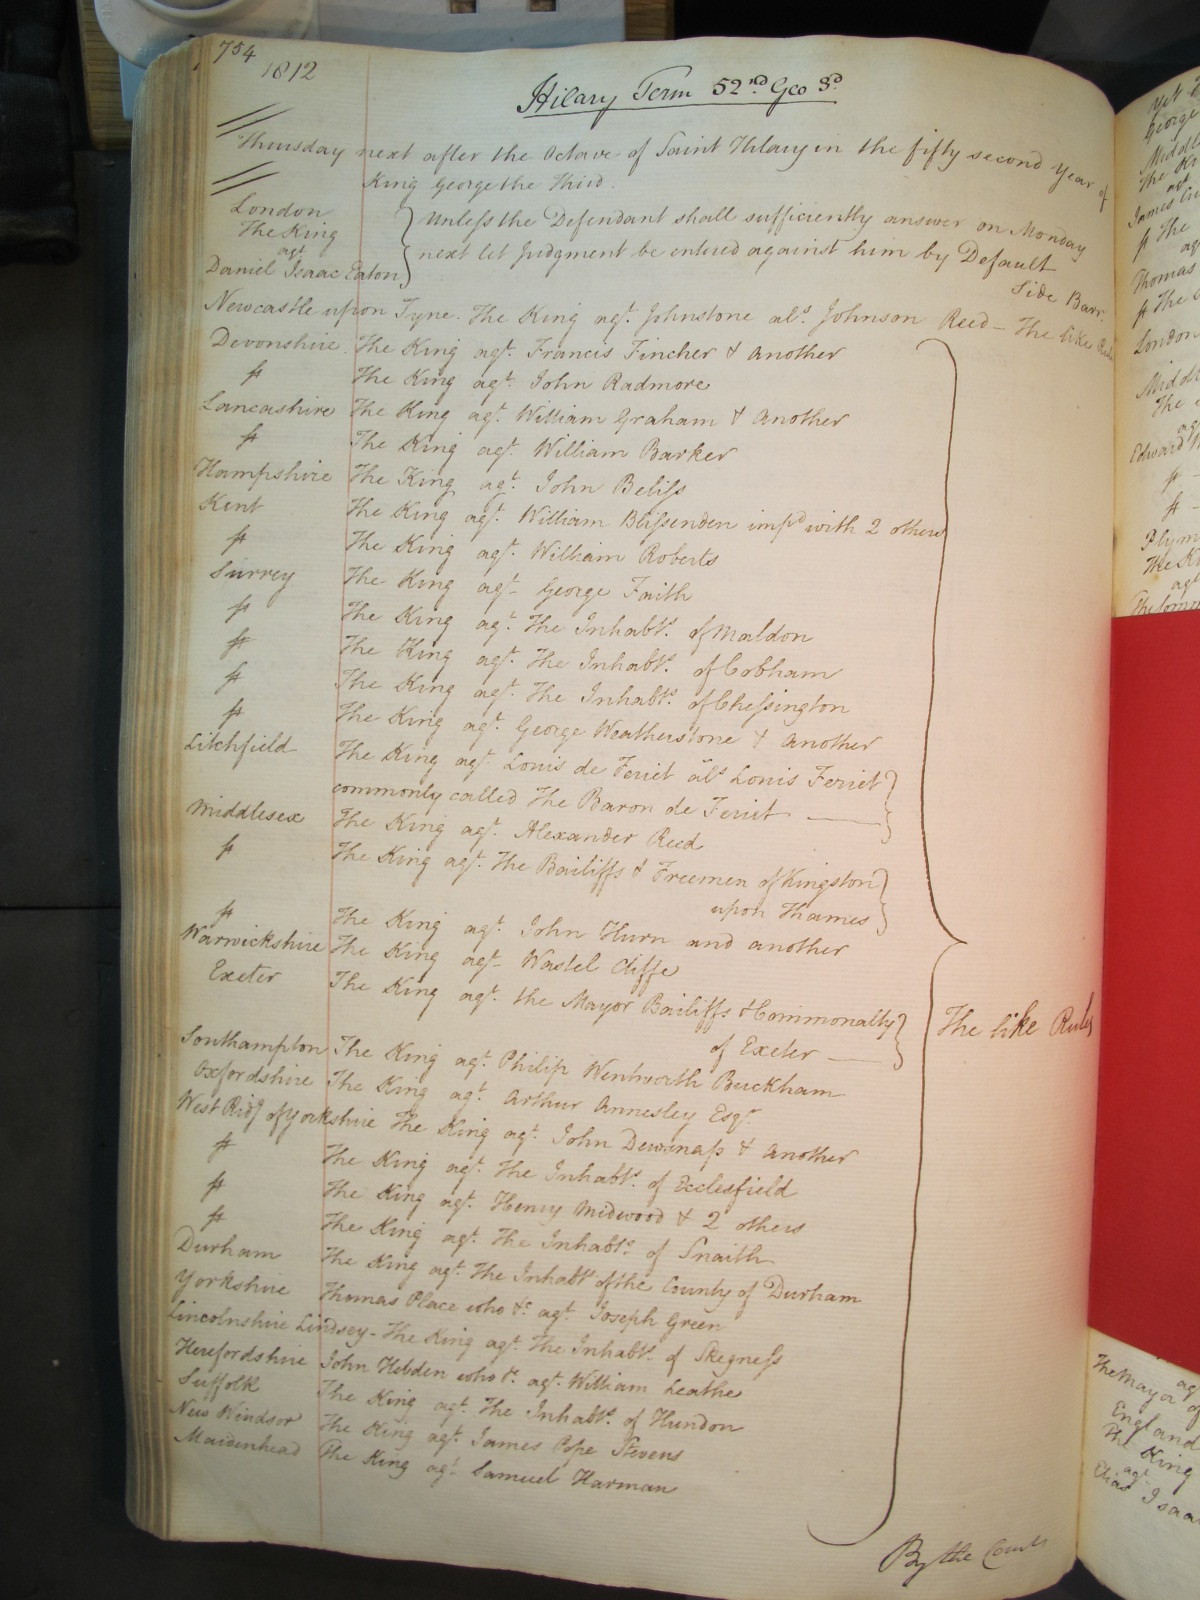 754
1812
Hilary Term 52nd Geo 3d
Thursday next after the Octave of Saint Hilary in the fifty second Year of
King George the Third.
London
The King
agt
Daniel Isaac Eaton
Unless the Defendant shall sufficiently answer on Monday
next let Judgment be entered against him by Default
Side Barr.
Newcastle upon Tyne. The King agt. Johnstone als. Johnson Reed - The like Rule
Devonshire. The King agt. Francis Fincher & another
The King agt. John Radmore
Lancashire The King agt. William Graham & Another
The King agt. William Barker
Hampshire The King agt. John Beliss
Kent The King agt. William Blissenden impd with 2 others
The King agt. William Roberts
Surrey The King agt. George Faith
The King agt. The Inhabts. of Maldon
The King agt. The Inhabts. of Cobham
The King agt. The Inhabts. of Chessington
The King agt. George Weatherstone & another
Litchfield The King agt. Louis de Feriet als Louis Feriet
commonly called The Baron de Feriet
Middlesex The King agt. Alexander Reed
The King agt. The Bailiffs & Freemen of Kingston
upon Thames
The King agt. John Hurn and another
Warwickshire The King agt. Wastel Cliffe
Exeter The King agt. the Mayor Bailiffs & Commonalty
of Exeter
The like Rules
Southampton The King agt. Philip Wentworth Buckham
Oxfordshire The King agt. Arthur Annesley Esqr.
West Ridg of Yorkshire The King agt. John Dewsnap & another
The King agt. The Inhabts. of Ecclesfield
The King agt. Henry Midwood & 2 others
The King agt. The Inhabts. of Snaith
Durham The King agt. The Inhabts of the County of Durham
Yorkshire Thomas Place who &c agt. Joseph Green
Lincolnshire Lindsey - The King agt. The Inhabts. of Skegness
Herefordshire John Hebden who &c. agt. William Leathe
Suffolk The King agt. The Inhabts. of Hundon
New Windsor The King agt. James Pope Stevens
Maidenhead The King agt. Samuel Harman
By the Court